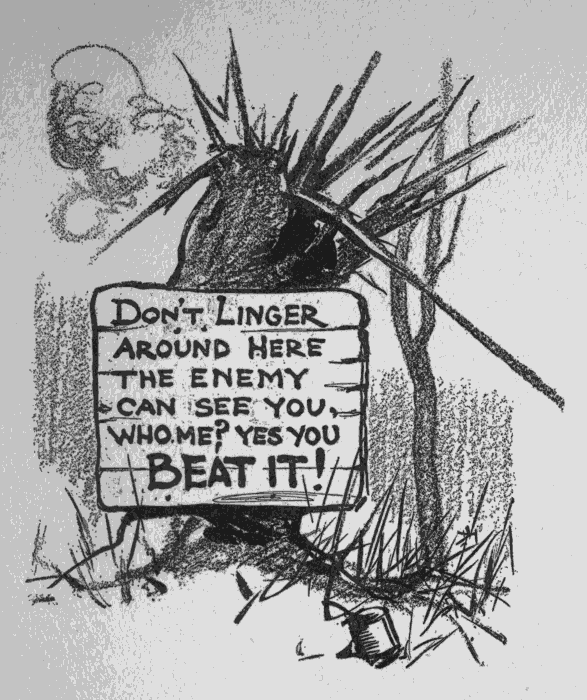 DON'T LINGER
AROUND HERE
THE ENEMY
CAN SEE YOU,
WHO.ME? YES YOU
BEAT IT!